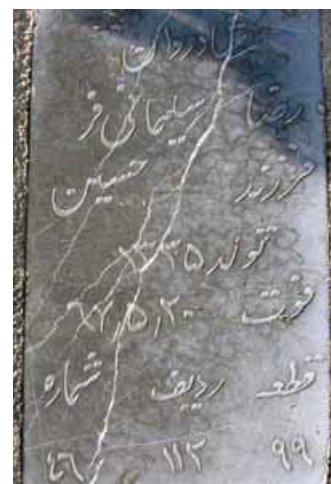 شادروان
رضا سلیمانی فر
فرزند حسین
تولد ۱۳۳۵
فوت ۶۷٫۵٫۲۰
قطعه ردیف شماره
۹۹ ۱۱۲ ۴۶